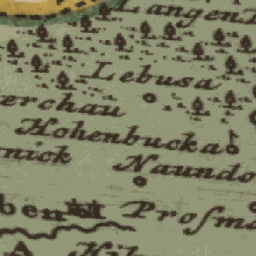 Langen
Lebusa
erchau
Hohenbucka
nick
Naundo
ben
Prosm